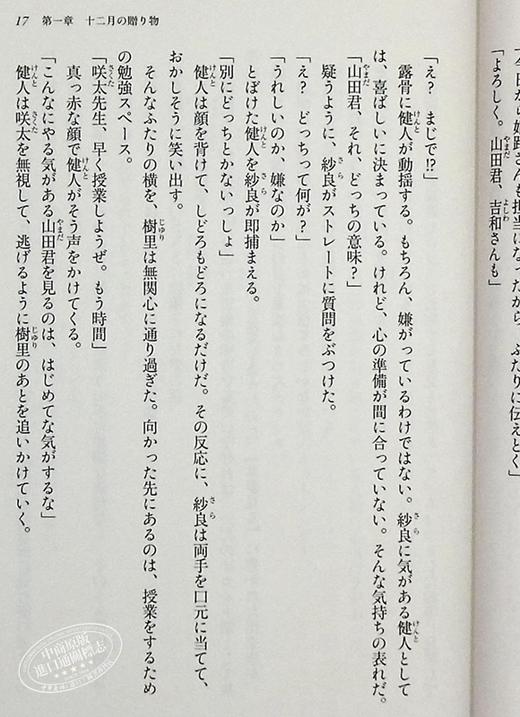 17　第一章　十二月の贈り物
今日から姫路さんも担当になったから、ふたりに伝えとく」
「よろしく。山田君、吉和さんも」
「え？　まじで!?」
露骨に健人が動揺する。もちろん、嫌がっているわけではない。紗良に気がある健人として
は、喜ばしいに決まっている。けれど、心の準備が間に合っていない。そんな気持ちの表れだ。
「山田君、それ、どっちの意味？」
疑うように、紗良がストレートに質問をぶつけた。
「え？　どっちって何が？」
「うれしいのか、嫌なのか」
とぼけた健人を紗良が即捕まえる。
「別にどっちとかないっしょ」
健人は顔を背けて、しどろもどろになるだけだ。その反応に、紗良は両手を口元に当てて、
おかしそうに笑い出す。
そんなふたりの横を、樹里は無関心に通り過ぎた。向かった先にあるのは、授業をするため
の勉強スペース。
「咲太先生、早く授業しようぜ。もう時間」
真っ赤な顔で健人がそう声をかけてくる。
「こんなにやる気がある山田君を見るのは、はじめてな気がするな」
健人は咲太を無視して、逃げるように樹里のあとを追いかけていく。
中商原版
進口通圖標志